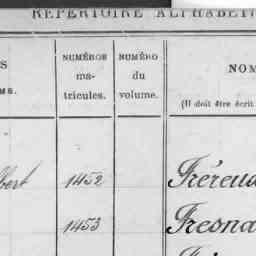 RÉPERTOIRE ALPHABÉTI
S
MS.
NUMÉROS
ma-
tricules.
NUMÉRO
du
volume.
NOM
(Il doit être écrit
bert 1452 Fréreu
1453 Fresna